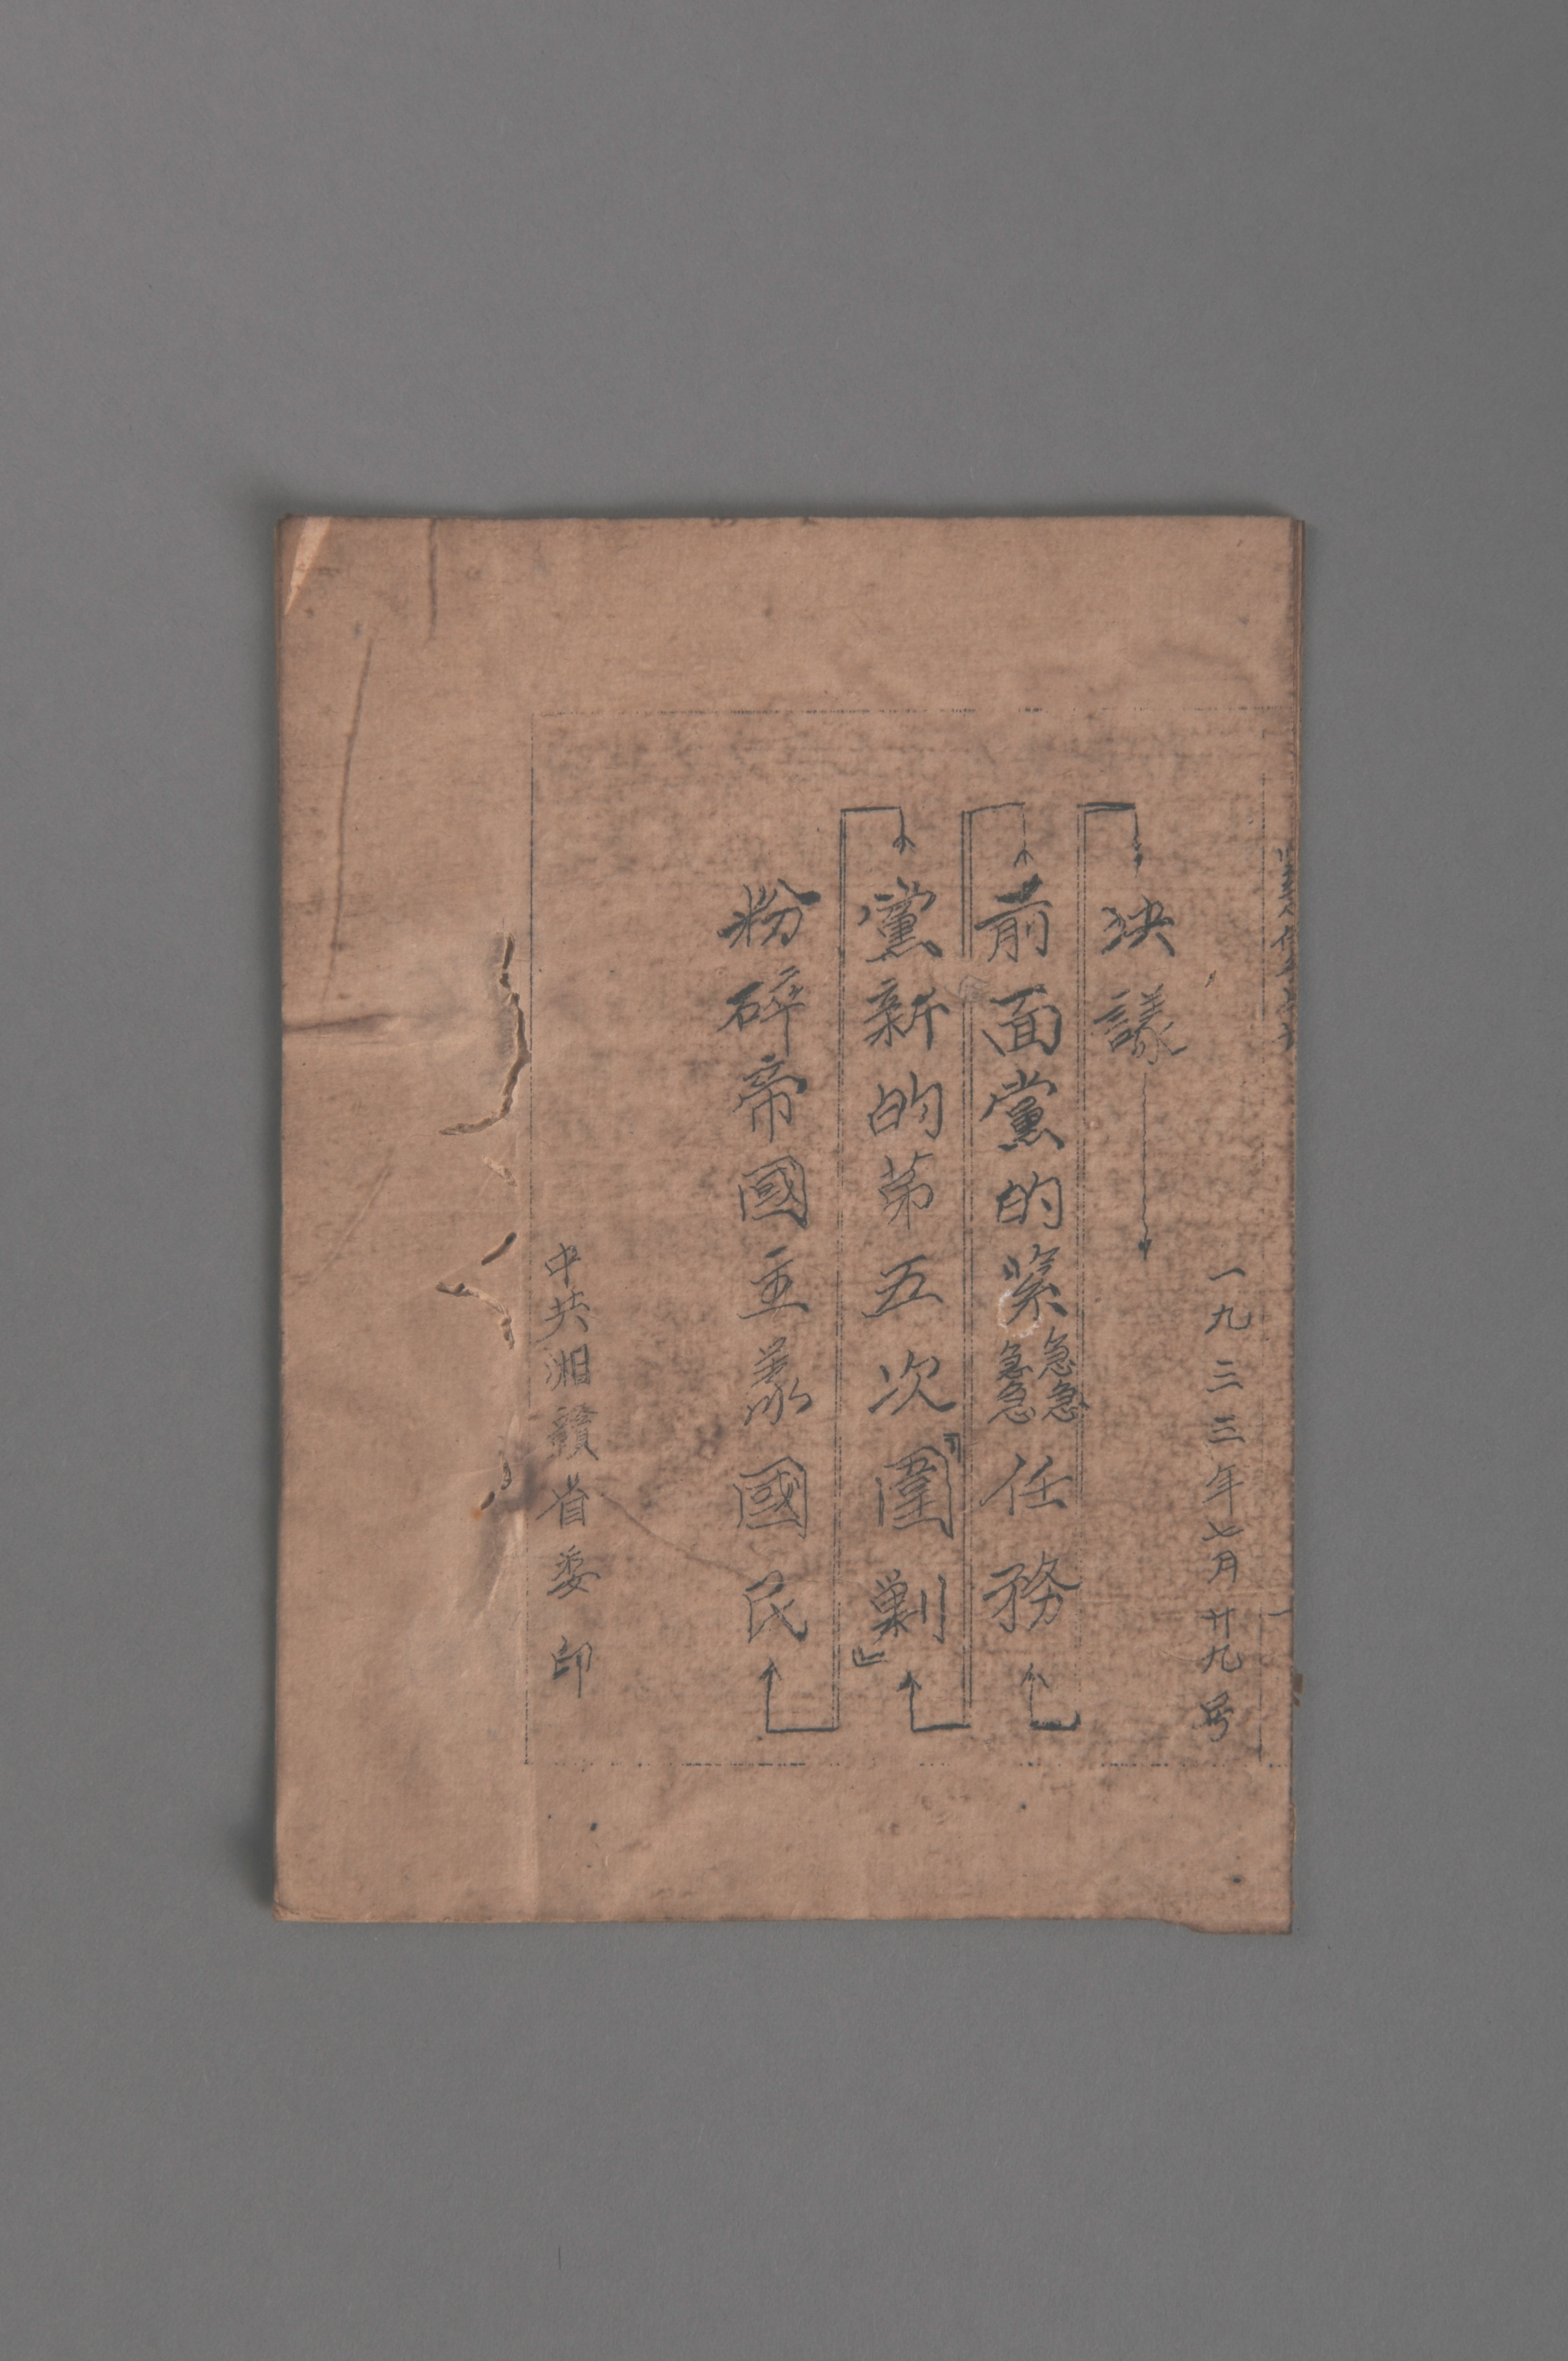 中共湘贛省委印
粉碎帝國主義國民
黨新的苐五次『圍剿』
前面黨的緊急急急急任務
决議
一九三三年七月廿九号